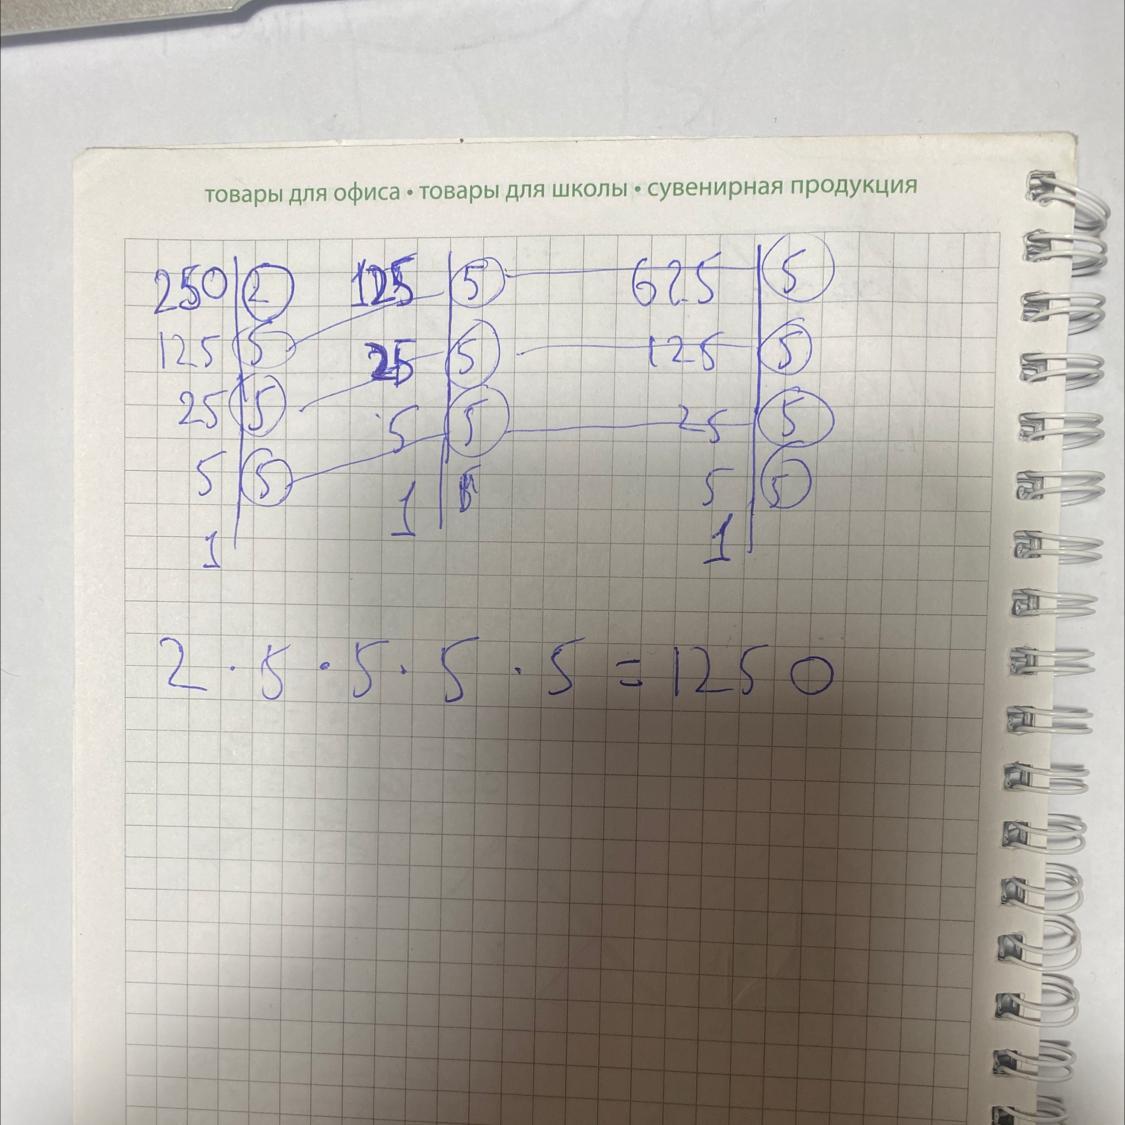 товары для офиса • товары для школы • сувенирная продукция
250 2 125 5 625 5
125 5 25 5 125 5
25 5 5 5 25 5
5 5 1 5 5
1 1
2 · 5 · 5 · 5 · 5 = 1250